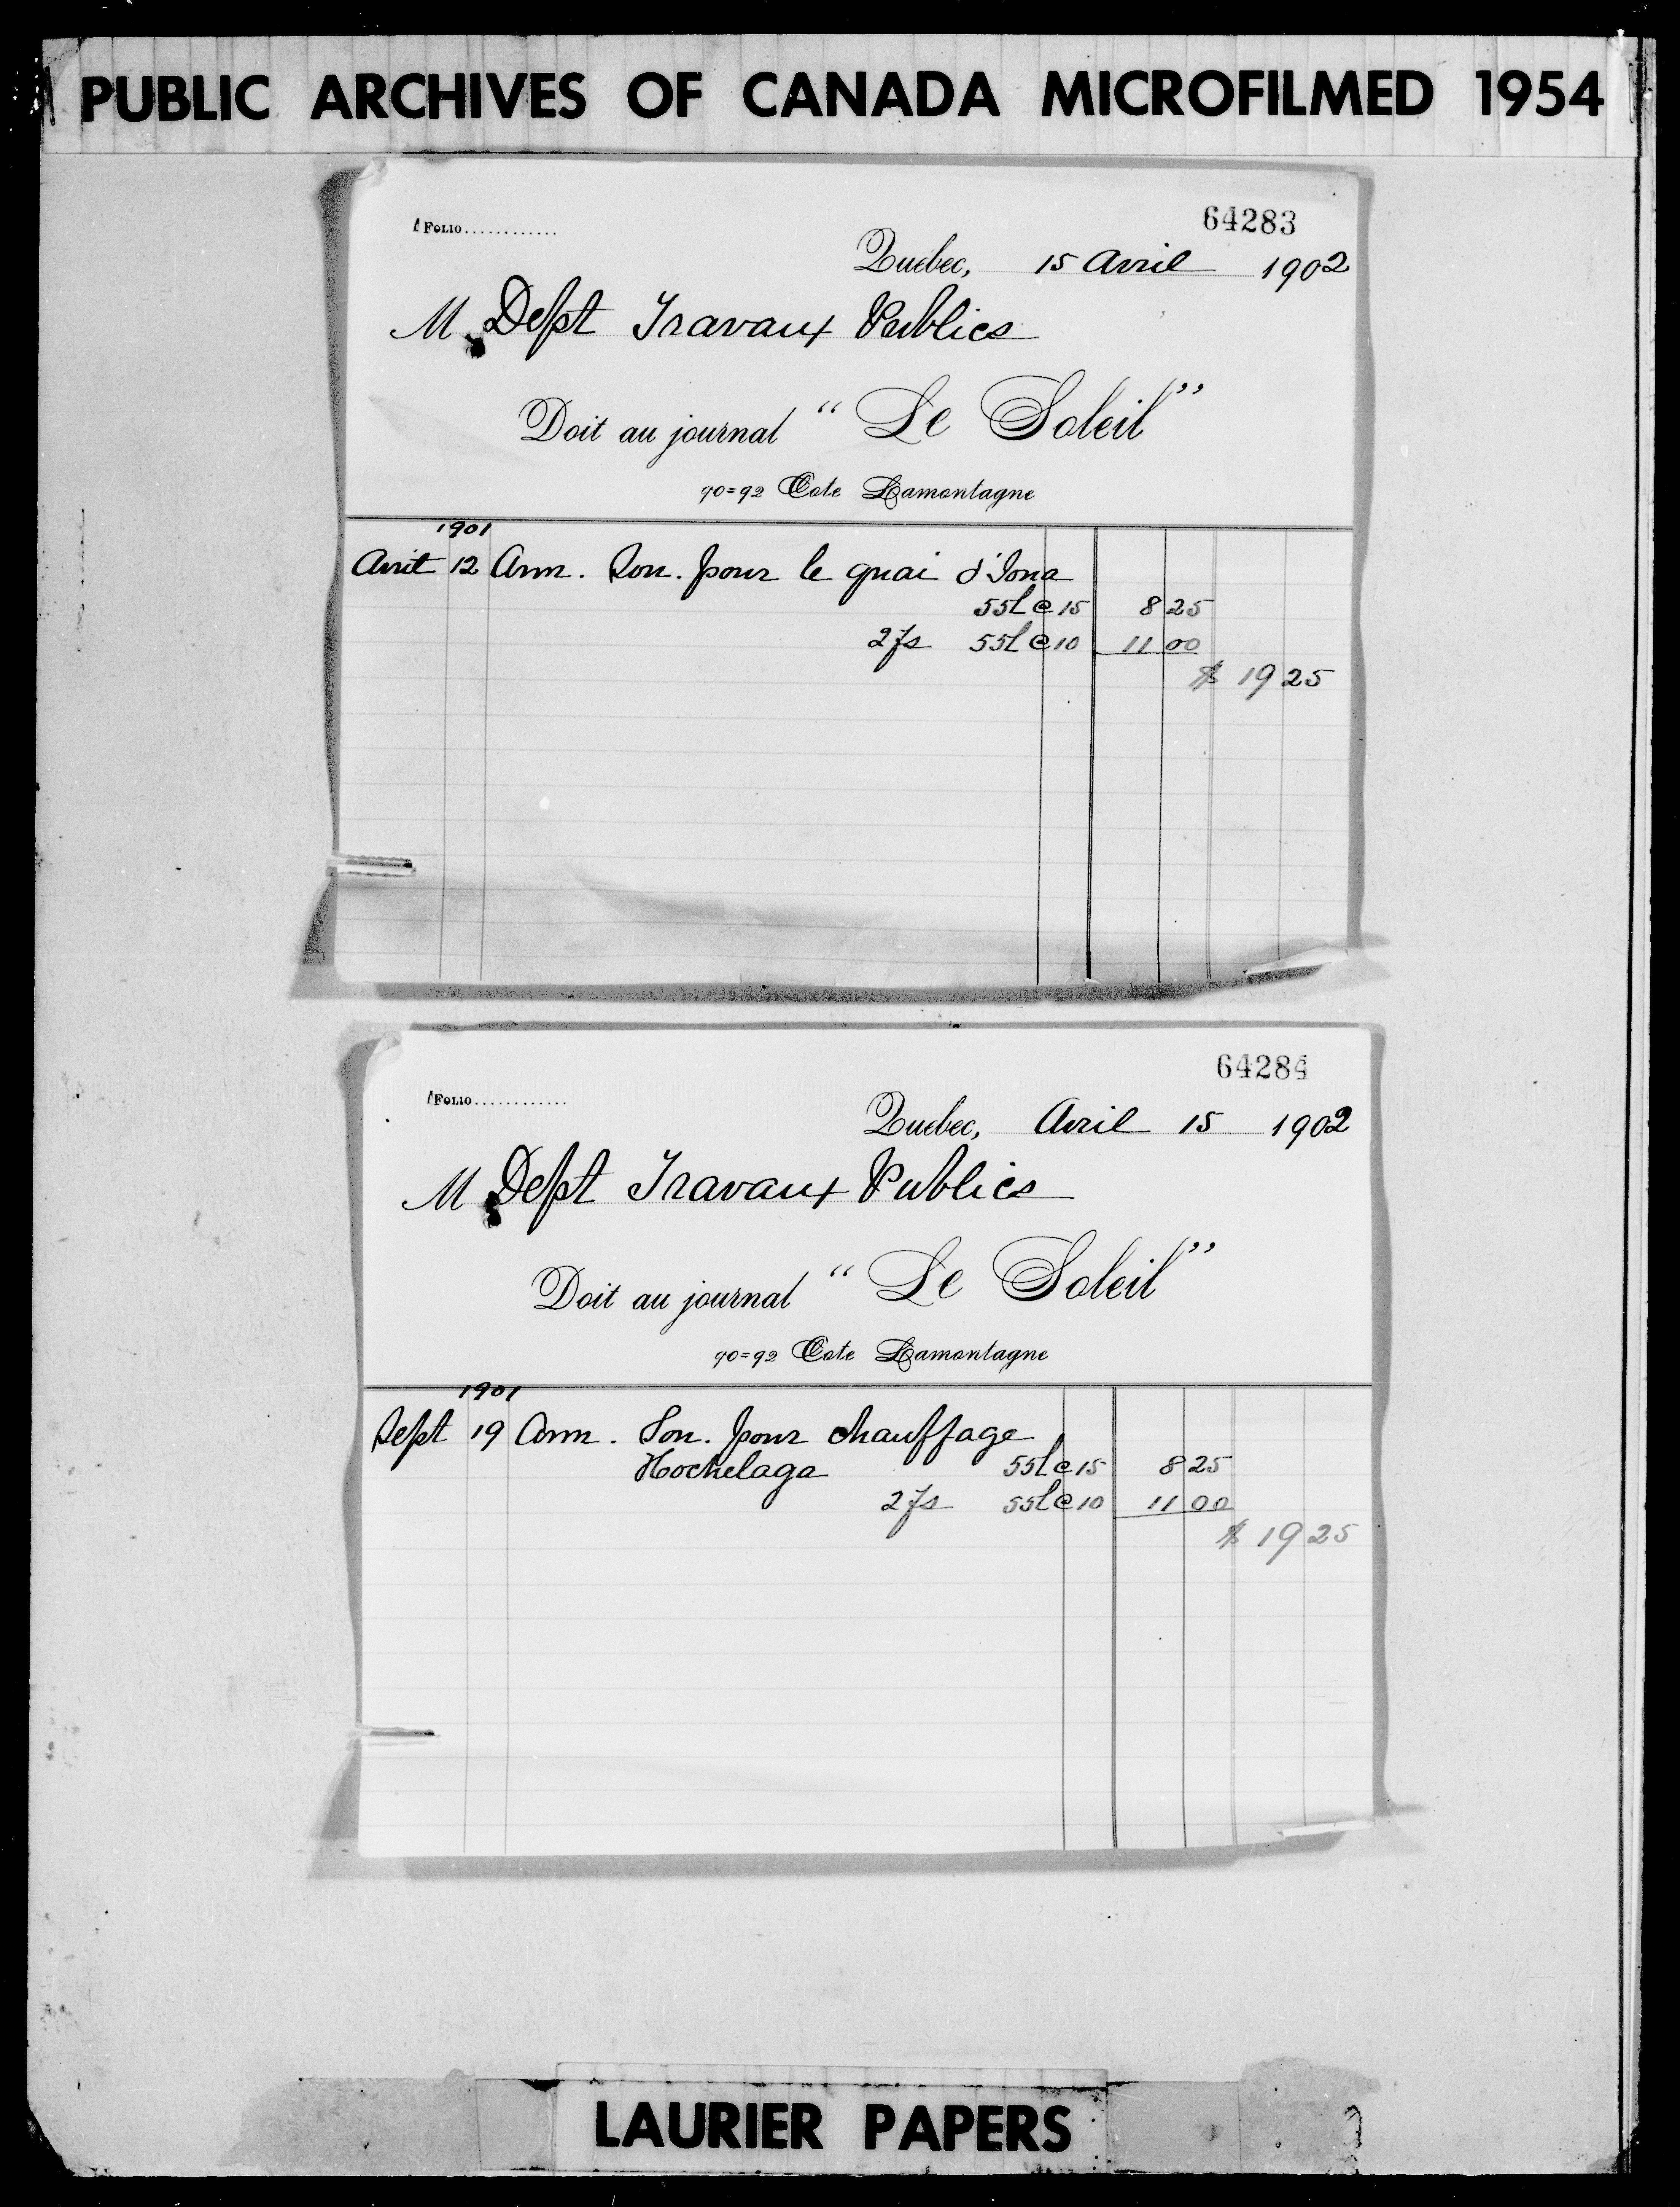 PUBLIC ARCHIVES OF CANADA MICROFILMED 1954
64283
FOLIO............
Quebec, 15 Avril 1902
M Dept Travaux Publics
Doit au journal “Le Soleil”
90=92 Cote Lamontagne
1901
Avril 12 Ann. Sou. pour le quai d'Iona
55l @ 15 8 25
2fs 55l @ 10 11 00
$ 19 25
64284
FOLIO............
Quebec, Avril 15 1902
M Dept Travaux Publics
Doit au journal “Le Soleil”
90=92 Cote Lamontagne
1901
Sept 19 Ann. Sou. pour chauffage
Hochelaga 55l @ 15 8 25
2fs 55l @ 10 11 00
$ 19 25
LAURIER PAPERS